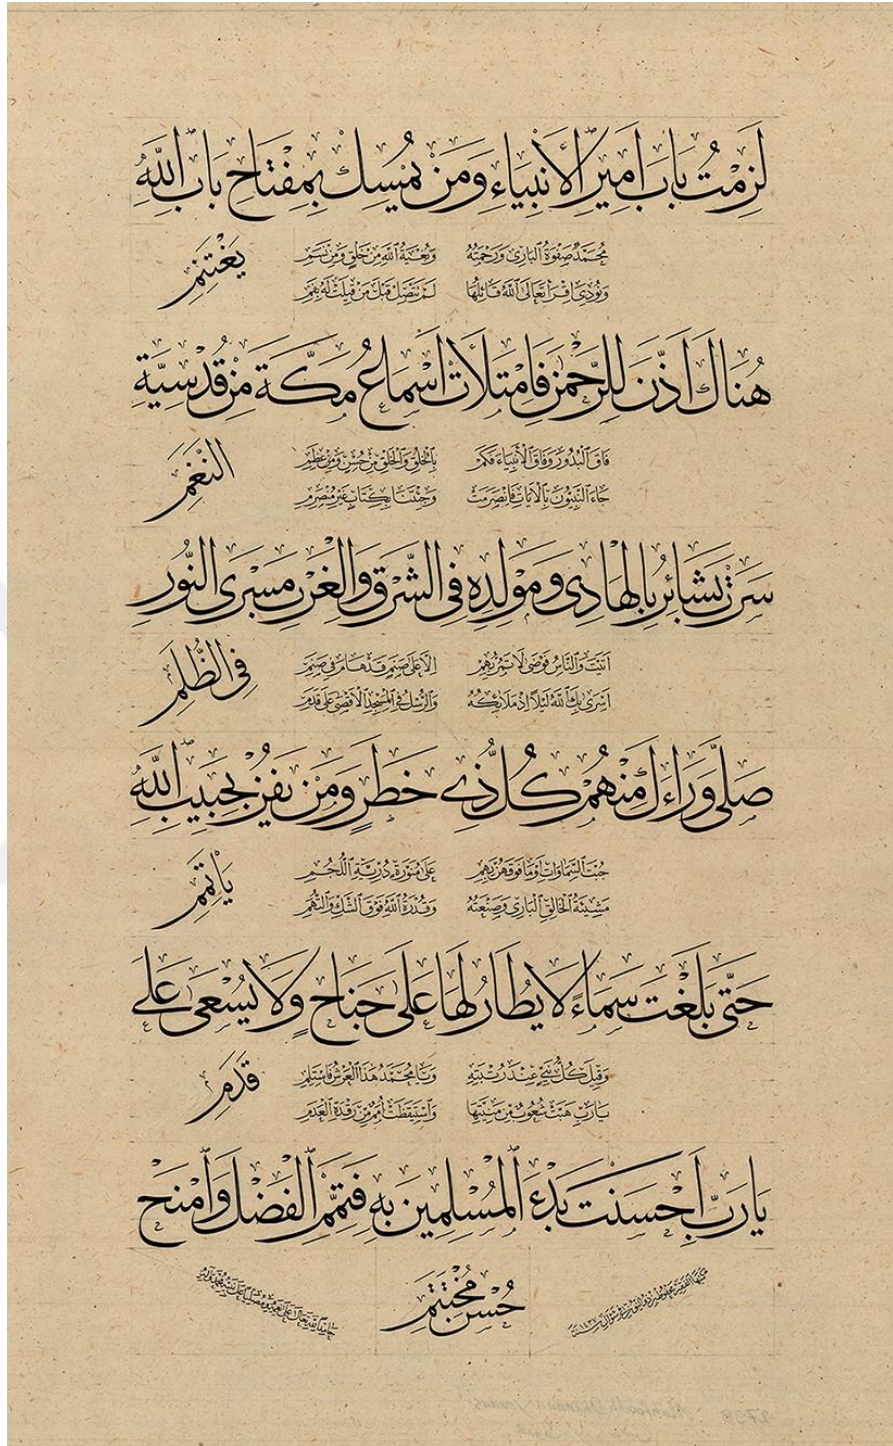 لَزِمْتُ بَابَ اَمِيرِ الْأَنْبِيَاءِ وَمَنْ يُمْسِكْ بِمِفْتَاحِ بَابِ اللّٰهِ
يَغْتَنِمِ
مُحَمَّدٌ صَفْوَةُ الْبَارِي وَرَحْمَتُهُ وَبُغْيَةُ اللّٰهِ مِنْ خَلْقٍ وَمِنْ نَسَمِ
وَنُودِيَ اِقْرَأْ تَعَالَى اللّٰهُ قَائِلُهَا لَمْ تَتَّصِلْ قَبْلَ مَنْ قِيلَتْ لَهُ بِفَمِ
هُنَاكَ اَذَّنَ لِلرَّحْمٰنِ فَامْتَلَأَتْ اَسْمَاعُ مَكَّةَ مِنْ قُدْسِيَّةِ
النَّغَمِ
فَاقَ الْبُدُورَ وَفَاقَ الْأَنْبِيَاءَ فَكَمْ بِالْخُلْقِ وَالْخَلْقِ مِنْ حُسْنٍ وَمِنْ عِظَمِ
جَاءَ النَّبِيُّونَ بِالْاٰيَاتِ فَانْصَرَمَتْ وَجِئْتَنَا بِكِتَابٍ غَيْرِ مُنْصَرِمِ
سَرَتْ بَشَائِرُ بِالْهَادِي وَمَوْلِدِهِ فِي الشَّرْقِ وَالْغَرْبِ مَسْرَى النُّورِ
فِي الظُّلَمِ
اَتَيْتَ وَالنَّاسُ فَوْضَى لَا تَمُرُّ بِهِمْ اِلَّا عَلَى صَنَمٍ قَدْ هَامَ فِي صَنَمِ
اَسْرَى بِكَ اللّٰهُ لَيْلًا اِذْ مَلَائِكُهُ وَالرُّسْلُ فِي الْمَسْجِدِ الْأَقْصَى عَلَى قَدَمِ
صَلَّى وَرَاءَكَ مِنْهُمْ كُلُّ ذِي خَطَرٍ وَمَنْ يَفُزْ بِحَبِيبِ اللّٰهِ
يَأْتَمِمِ
جُبْتَ السَّمَاوَاتِ اَوْ مَا فَوْقَهُنَّ بِهِمْ عَلَى مُنَوَّرَةٍ دُرِّيَّةِ اللُّجُمِ
مَشِيئَةُ الْخَالِقِ الْبَارِي وَصَنْعَتُهُ وَقُدْرَةُ اللّٰهِ فَوْقَ الشَّكِّ وَالتُّهَمِ
حَتَّى بَلَغْتَ سَمَاءً لَا يُطَارُ لَهَا عَلَى جَنَاحٍ وَلَا يُسْعَى عَلَى
قَدَمِ
وَقِيلَ كُلُّ نَبِيٍّ عِنْدَ رُتْبَتِهِ وَيَا مُحَمَّدُ هٰذَا الْعَرْشُ فَاسْتَلِمِ
يَا رَبِّ هَبَّتْ شُعُوبٌ مِنْ مَنِيَّتِهَا وَاسْتَيْقَظَتْ اُمَمٌ مِنْ رَقْدَةِ الْعَدَمِ
يَا رَبِّ اَحْسَنْتَ بَدْءَ الْمُسْلِمِينَ بِهِ فَتَمِّمِ الْفَضْلَ وَامْنَحْ
حُسْنَ مُخْتَتَمِ